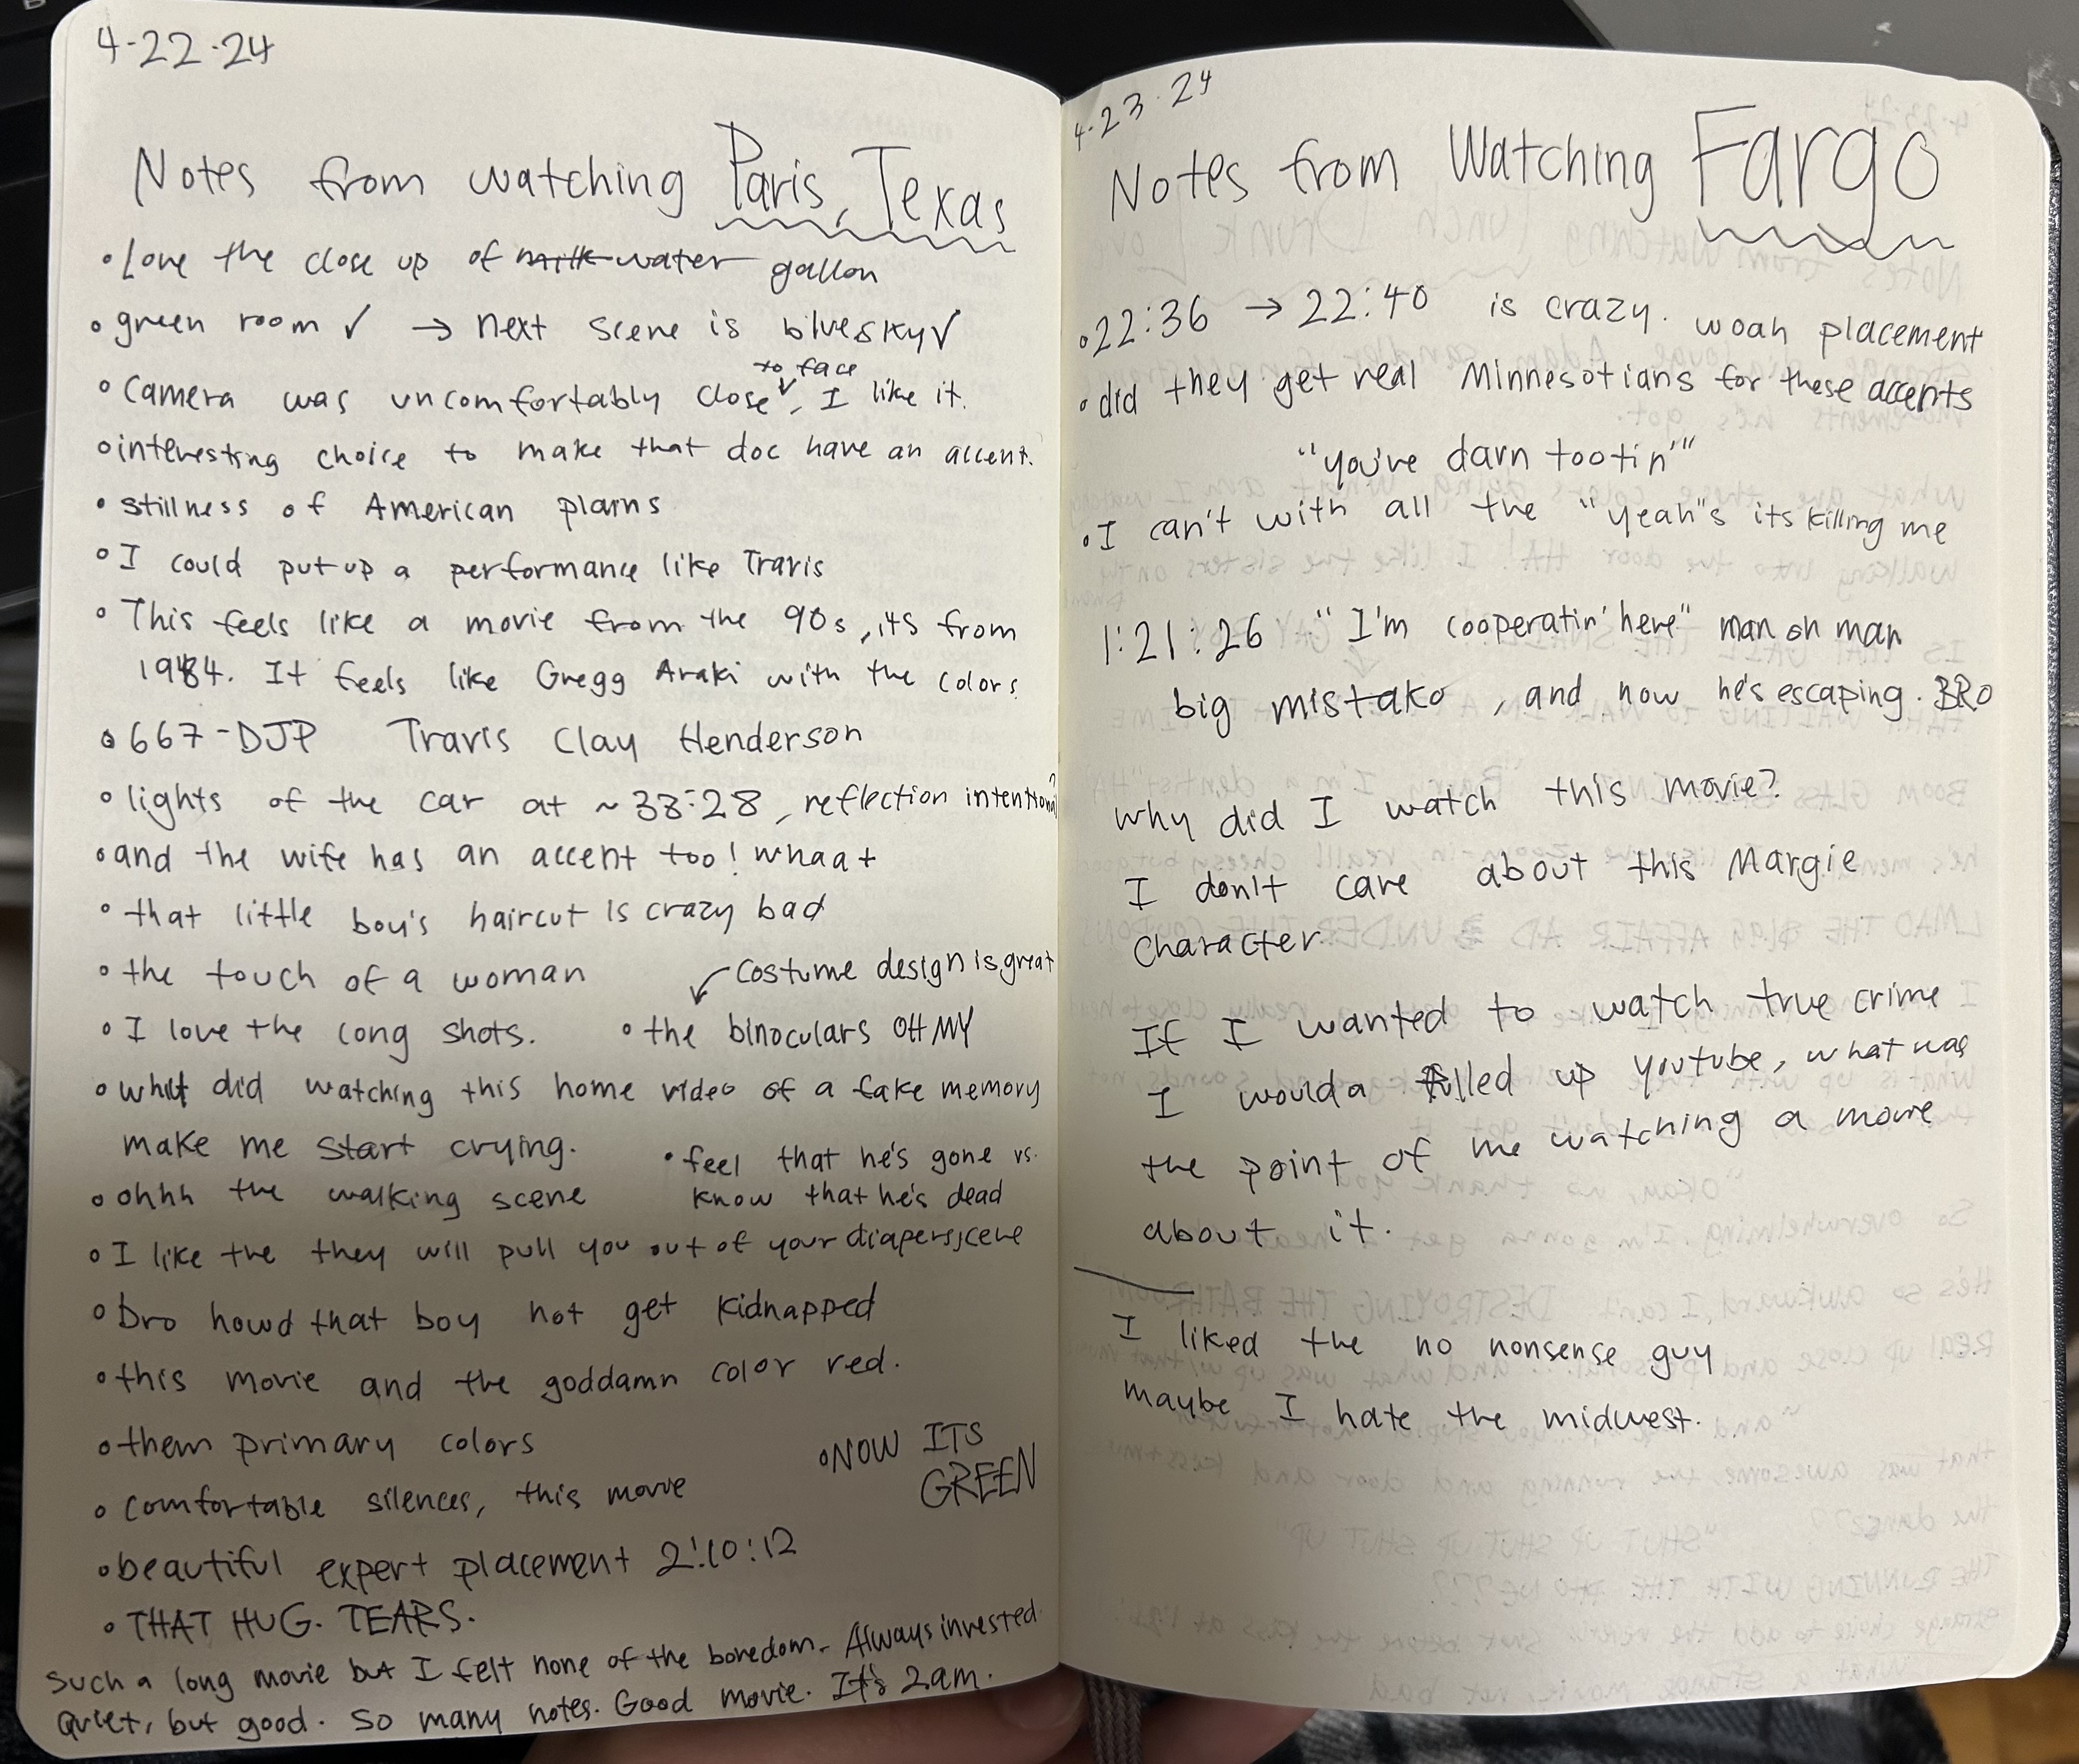 4-22-24
Notes from watching Paris, Texas
•Love the close up of milk water gallon
•green room ✓ → next scene is bluesky ✓
to face
•Camera was uncomfortably close, I like it.
•interesting choice to make that doc have an accent.
•stillness of American plains
•I could put up a performance like Travis
•This feels like a movie from the 90s, its from
1984. It feels like Gregg Araki with the colors.
•667-DJP Travis Clay Henderson
•lights of the car at ~38:28, reflection intentional?
•and the wife has an accent too! whaat
•that little boy's haircut is crazy bad
•the touch of a woman
costume design is great
•I love the long shots. •the binoculars OH MY
•what did watching this home video of a fake memory
make me start crying.
•feel that he's gone vs.
know that he's dead
•ohhh the walking scene
•I like the they will pull you out of your diaper scene
•bro howd that boy not get kidnapped
•this movie and the goddamn color red.
•them primary colors
•NOW ITS
GREEN
•comfortable silences, this movie
•beautiful expert placement 2:10:12
•THAT HUG. TEARS.
Such a long movie but I felt none of the boredom. Always invested.
Quiet, but good. So many notes. Good movie. It's 2am.
4-23-24
Notes from Watching Fargo
•22:36 → 22:40 is crazy. woah placement
•did they get real Minnesotians for these accents
"you're darn tootin'"
•I can't with all the "yeah"s its killing me
1:21:26 "I'm cooperatin' here" man oh man
big mistako, and now he's escaping. BRO
why did I watch this movie?
I don't care about this Margie
character
If I wanted to watch true crime
I woulda pulled up youtube, what was
the point of me watching a movie
about it.
I liked the no nonsense guy
maybe I hate the midwest.